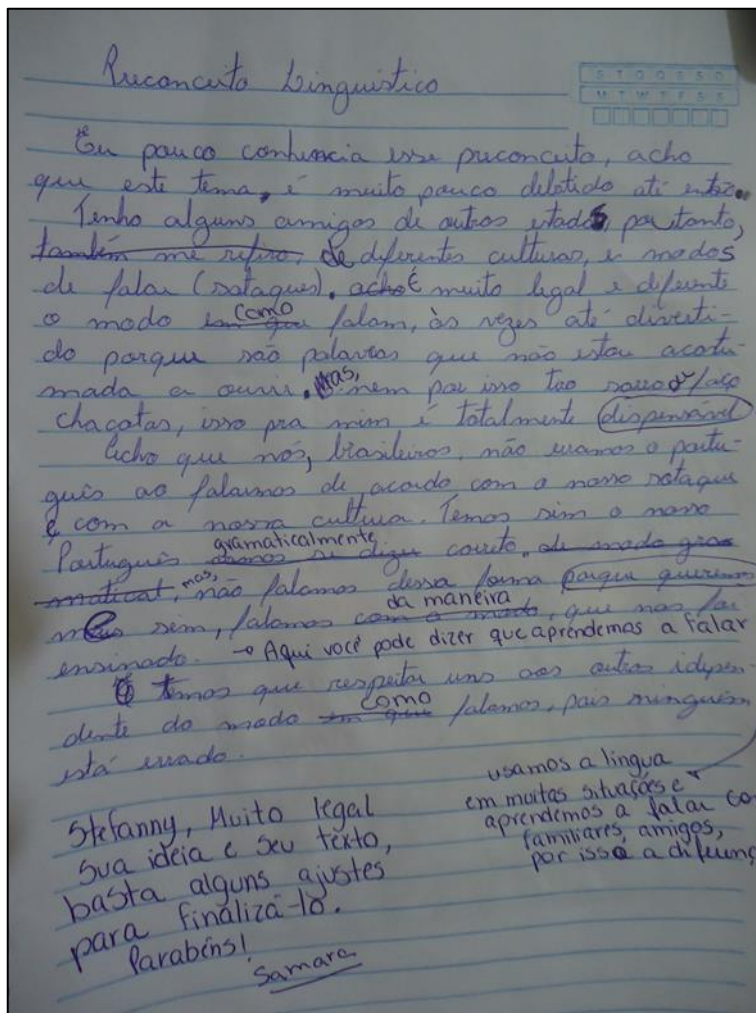 Preconceito Linguístico
S T Q Q S S D
M T W T F S S
Eu pouco conhencia esse preconceito, acho
que este tema, é muito pouco debatido até então.
Tenho alguns amigos de outros estados, portanto,
também me refiro, de diferentes culturas, e modos
de falar (sotaques). acho É muito legal e diferente
o modo em que como falam, às vezes até diverti-
do porque são palavras que não estou acostu-
mada a ouvir. Mas, nem por isso tao sarro ou faço
chacotas, isso pra mim é totalmente dispensável
Acho que nós, brasileiros, não usamos o portu-
guês ao falarmos de acordo com o nosso sotaque
e com a nossa cultura. Temos sim o nosso
Português gramaticalmente correto, de modo gra-
matical, mas, não falamos dessa forma porque queremos
mas sim, falamos com o modo, da maneira que nos foi
ensinado. → Aqui você pode dizer que aprendemos a falar
temos que respeitar uns aos outros idepen-
dente do modo em que como falamos, pois ninguém
está errado.
usamos a lingua
em muitas situações e
aprendemos a falar co
familiares, amigos,
por isso a diferenç
Stefanny, Muito legal
sua ideia e seu texto,
basta alguns ajustes
para finalizá-lo.
Parabéns!
Samara